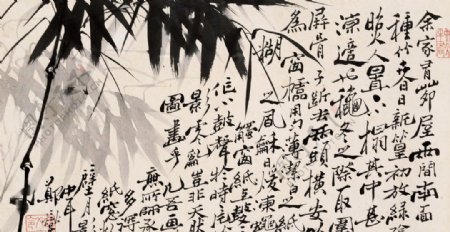 余家有茆屋兩間南面
種竹春日新篁初放綠陰
照人置一小榻其中甚
涼適也秋冬之際取圍
屏骨子斷去兩頭橫安以
為窗櫺用勻薄潔白之紙
糊之風和日暖凍蠅
觸窗紙上鼕鼕
作小鼓聲於時一片
影零亂豈非天然
圖畫乎凡吾畫
無所師承
多得於
紙窗粉
壁月影
鄭燮